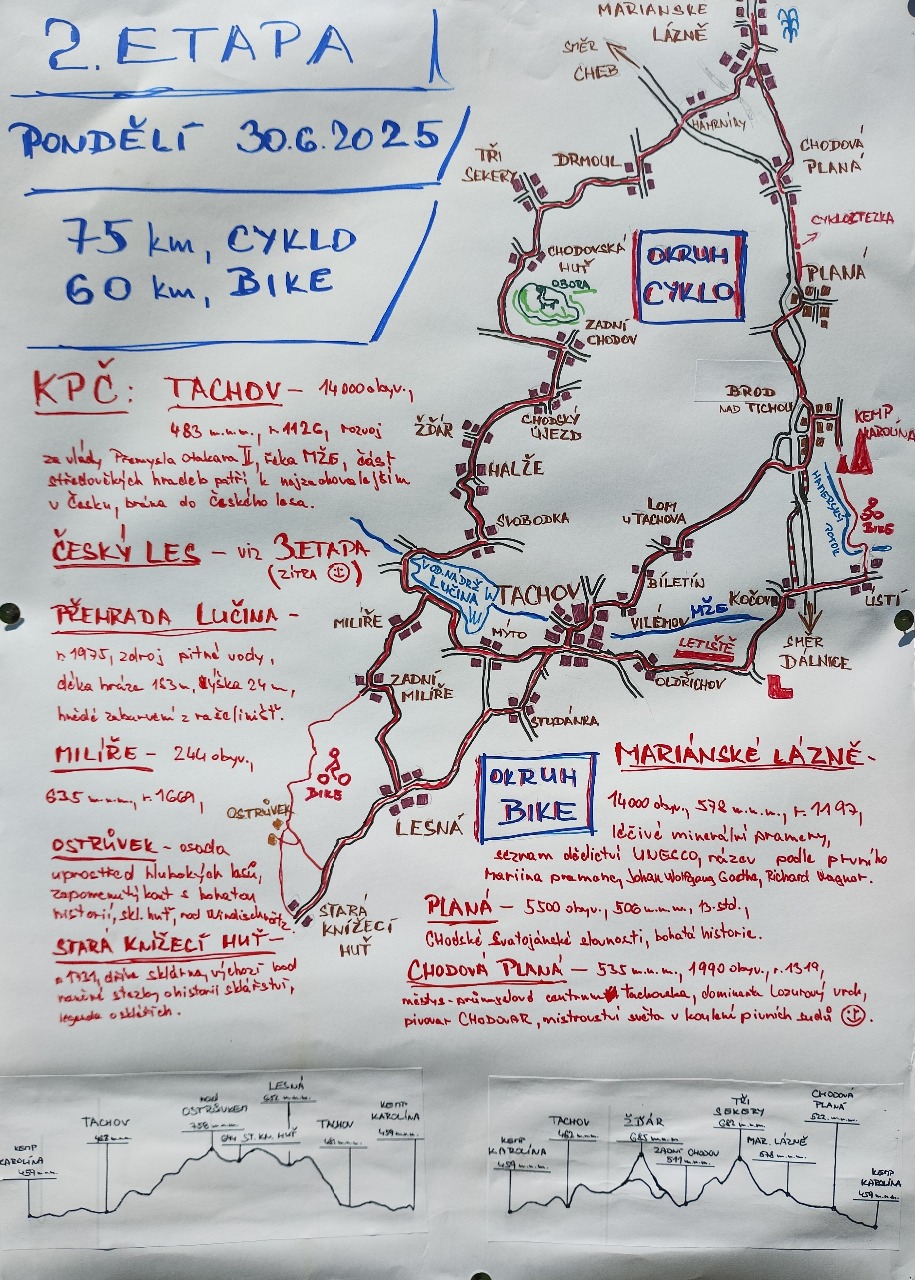 2. ETAPA
PONDĚLÍ 30.6.2025
75 km, CYKLO
60 km, BIKE
MARIÁNSKÉ
LÁZNĚ
SMĚR
CHEB
HAMRNÍKY
TŘI
SEKERY
DRMOUL
CHODOVÁ
PLANÁ
CYKLOSTEZKA
CHODOVSKÁ
HUŤ
OBORA
OKRUH
CYKLO
PLANÁ
ZADNÍ
CHODOV
BROD
NAD TICHOU
KEMP
KAROLÍNA
CHODSKÝ
ÚJEZD
ŽĎÁR
HALŽE
HAMERSKÝ
POTOK
BIKE
SVOBODKA
LOM
U TACHOVA
BÍLETÍN
VOD. NÁDRŽ
LUČINA
TACHOV
VILÉMOV
MŽE
KOČOV
ÚSTÍ
MILÍŘE
MÝTO
LETIŠTĚ
SMĚR
DÁLNICE
ZADNÍ
MILÍŘE
OLDŘICHOV
STUDÁNKA
BIKE
OSTRŮVEK
LESNÁ
OKRUH
BIKE
STARÁ
KNÍŽECÍ
HUŤ
KPČ: TACHOV – 14 000 obyv.,
483 m.n.m., r. 1126, rozvoj
za vlády Přemysla Otakara II, řeka MŽE, část
středověkých hradeb patří k nejzachovalejším
v Česku, brána do Českého lesa.
ČESKÝ LES – viz 3. ETAPA
(ZÍTRA ☺)
PŘEHRADA LUČINA –
r. 1975, zdroj pitné vody,
délka hráze 163 m, výška 24 m,
hnědé zabarvení z rašelinišť.
MILÍŘE – 244 obyv.,
635 m.n.m., r. 1669,
OSTRŮVEK – osada
uprostřed hlubokých lesů,
zapomenutý kout s bohatou
historií, skl. huť, rod Windischgrätz.
STARÁ KNÍŽECÍ HUŤ –
r. 1731, dříve sklárna, výchozí bod
naučné stezky o historii sklářství,
legenda o sklářích.
MARIÁNSKÉ LÁZNĚ –
14000 obyv., 578 m.n.m., r. 1197,
léčivé minerální prameny,
seznam dědictví UNESCO, název podle prvního
Mariina pramene, Johan Wolfgang Goethe, Richard Wagner.
PLANÁ – 5500 obyv., 506 m.n.m., 13. stol.,
Chodské Svatojánské slavnosti, bohatá historie.
CHODOVÁ PLANÁ – 535 m.n.m., 1990 obyv., r. 1319,
městys – průmyslové centrum Tachovska, dominanta Lazurový vrch,
pivovar CHODOVAR, mistrovství světa v koulení pivních sudů ☺.
KEMP
KAROLÍNA
459 m.n.m.
TACHOV
483 m.n.m.
NAD
OSTRŮVKEM
758 m.n.m.
ST. KN. HUŤ
LESNÁ
TACHOV
KEMP
KAROLÍNA
459 m.n.m.
KEMP
KAROLÍNA
459 m.n.m.
TACHOV
483 m.n.m.
ŽĎÁR
ZADNÍ CHODOV
TŘI
SEKERY
MAR. LÁZNĚ
578 m.n.m.
CHODOVÁ
PLANÁ
KEMP
KAROLÍNA
459 m.n.m.